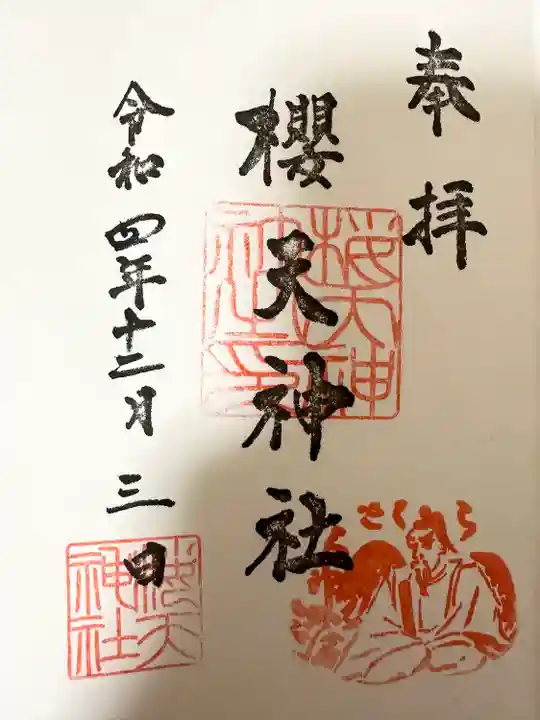 奉拝
櫻天神社
令和四年十二月三日
桜天神
社印
さくら
桜天
神社